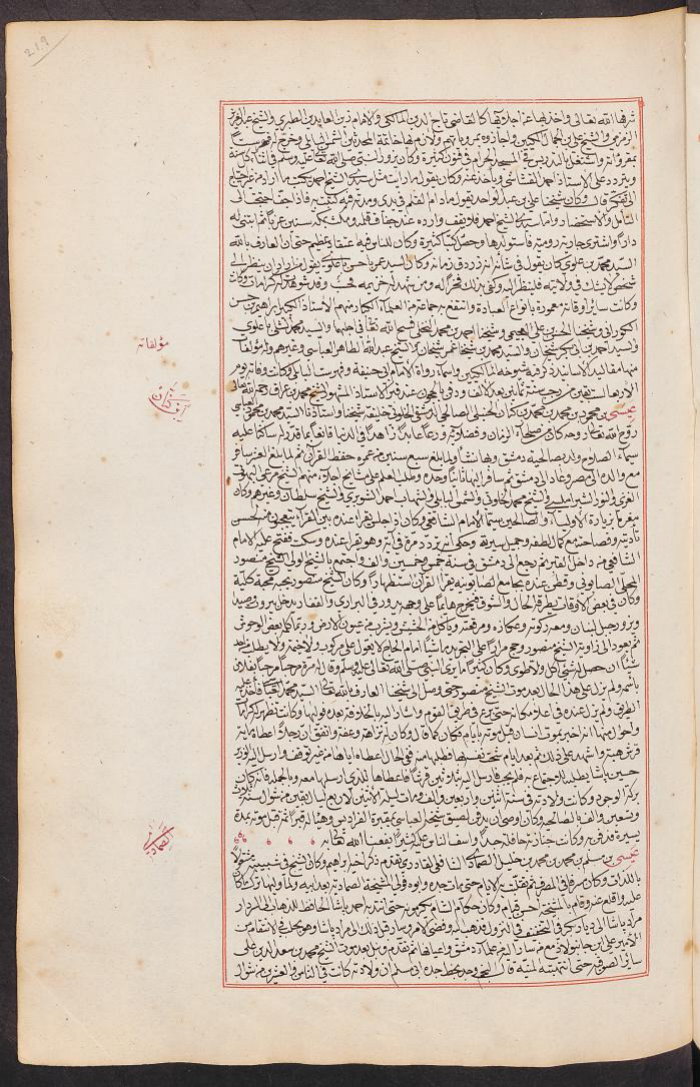 219
شرفها الله تعالى واخذ بها عن اجلائها كالقاضي تاج الدين المالكي والامام زين العابدين الطبري والشيخ عبد العزيز
الزمزمي والشيخ علي بن الجمال المكيين واجازوه بمروياتهم ولازم بها خاتمة المحدثين الشمس البابلي وخرج له فهرستا
بمقروآته واشتغل بالتدريس في المسجد الحرام في فنون كثيرة وكان يزور النبي صلى الله تعالى عليه وسلم في اثناء كل سنة
ويتردد على الاستاذ احمد القشاشي وياخذ عنه وكان يقول ما رايت مثل سيدي الشيخ احمد يكتب ما اراد من غير احتياج
الى تفكر قال وكان شيخنا علي بن عبد الواحد يقول ما دام القلم في يدي ومدته فيه كتبت به فاذا جف احتجت الى
التأمل والاستحضار واما سيدي الشيخ احمد فلا يقف وارده عند جفاف قلمه ومكث بمكة سنين عزبا ثم ابتنى له
دارا واشترى جارية رومية فاستولدها وحصل كتبا كثيرة وكان للناس فيه اعتقاد عظيم حتى ان العارف بالله
السيد محمد بن علوي كان يقول في شانه انه زروق زمانه وكان السيد عمر باحسن باعلوي يقول من اراد ان ينظر الى
شخص لا يشك في ولايته فلينظر اليه وكفى بذلك فخرا له ومن شهد له خزيمة فحسبه وقد شوهدت له كرامات وكان
وكانت سائر اوقاته معمورة بانواع العبادة وانتفع به جماعة من العلماء الكبار منهم الاستاذ الكبير ابراهيم بن حسن
الكوراني وشيخنا الحسن بن علي العجيمي وشيخنا احمد بن محمد النخلي فسح الله تعالى في اجلهما والسيد محمد الشلي باعلوي
والسيد احمد بن ابي بكر شيخان والسيد محمد بن شيخنا عمر شيخان والشيخ عبد الله الطاهر العباسي وغيرهم وله مؤلفات
منها مقاليد الاسانيد ذكر فيه شيوخه المالكيين واسماء رواة الامام ابي حنيفة وفهرست البابلي وكانت وفاته يوم
الاربعا لست بقين من رجب سنة ثمانين بعد الالف ودفن بالحجون عند قبر الاستاذ المشهور الشيخ محمد بن عراق رحمه الله تعالى
عيسى بن محمود بن محمد بن محمد بن كنان الحنبلي الصالحي الدمشقي الخلوتي خليفة شيخنا واستاذنا السيد محمد بن محمد العباسي
روح الله تعالى روحه كان من صلحاء الزمان وفضلائه ورعا عابدا زاهدا في الدنيا قانعا بما قدر له ساكنا عليه
سيماء الصلاح ولد بصالحية دمشق وبها نشا ولما بلغ سبع سنين من عمره حفظ القرآن ثم لما بلغ العز سافر
مع والده الى مصر وعاد الى دمشق ثم سافر اليها ثانيا وحده وطلب العلم على مشايخ اجلاء منهم الشيخ مرعي البهوتي
والنور الشبراملسي والشيخ محمد الخلوتي والشمس البابلي والشهاب احمد الشوبري والشيخ سلطان وغيرهم وكان
مغرما بزيارة الاولياء والصالحين سيما الامام الشافعي وكان اذا جلس يقرا عنده بين القراء يعجبهم من حسن
تاديته وفصاحته مع كمال لطفه وجميل سيرته وحكى انه تردد مرة في آية وهو يقرا عنده وسكت ففتح عليه الامام
الشافعي من داخل القبر ثم رجع الى دمشق في سنة خمس وخمسين والف واجتمع بالشيخ الولي الشيخ منصور
المحلي الصابوني وقطن عنده بجامع الصابونية يقرا القرآن استظهارا وكان الشيخ منصور يحبه محبة كلية
وكان في بعض الاوقات يطرقه الحال والشوق فيخرج هائما على وجهه ويدور في البراري والقفار يدخل بيروت وصيدا
ويزور جبل لبنان ومعه ركوته وعكازه ومرقعته وياكل من الحشيش ويشرب من عيون الارض وربما كلمه بعض الوحوش
ثم يعود الى زاوية الشيخ منصور وحج مرارا على التجريد ماشيا امام الحاج لا يعول على مركوب ولا خيمة ولا يطلب من احد
شيئا ان حصل له شيء اكل والا طوى وكان كثيرا ما يرى النبي صلى الله تعالى عليه وسلم وقال له مرة مرحبا مرحبا بفلان
باسمه ولم يزل على هذا الحال بعد موت الشيخ منصور حتى وصل الى شيخنا العارف بالله تعالى السيد محمد العباسي فاخذ عليه
الطريق ولم يزل عنده في اعلا مكانة حتى برع في طرق القوم واشار اليه بالخلافة بعده فوليها وكانت تظهر له كرامات
واحوال منها انه اخبر بموت انسان قبل موته بايام فكان كما قال وكان له نزاهة وعفة واتفق ان رجلا اعطاه ماية
قرش هبة واشهد على ذلك ثم بعد ايام شحت نفسه بها فطلبها منه ففي الحال اعطاه اياها من غير توقف وارسل اليه الوزير
حسين باشا يطلبه للاجتماع به فلم يجب فارسل اليه ثلاثين قرشا فاعطاها للذي ارسلها معه وبالجملة فانه كان
بركة الوجود وكانت ولادته في سنة اثنين واربعين والف ومات ليلة الاثنين لاربع ليال بقين من شوال سنة ثلاث
وتسعين والف بالصالحية وكان اوصى ان يدفن لصيق شيخه العباسي بمقبرة الفراديس وهيئا له قبرا ثم قبل موته بمدة
يسيرة فدفن به وكانت جنازته حافلة جدا واسف الناس عليه كثيرا نفعنا الله تعالى به
عيسى بن مسلم بن محمد بن محمد بن خليل الصمادي الشافعي القادري وتقدم ذكر اخيه ابراهيم وكان الشيخ في شبيبته مشغولا
باللذات وكان مسرفا في المصرف ثم تقلبت به الايام حتى مات جده وابوه فولي الشيخة الصمادية بعد ابيه ولما وليها ترك ما كان
عليه واقلع عنه وقام بالمشيخة احسن قيام وكان حكام الشام يكرمونه حتى انتدبه احمد باشا الحافظ للذهاب الى السردار
مراد باشا الى ديار بكر في التخفيف في النزول فذهب اليه وقضى الامر وسار قبل ذلك الى مراد باشا وهو بحلب في الانتقام من
الامير علي ابن جانبولاذ مع من سار اليه من علماء دمشق واعيانها ثم تقدم وسيل بعد موت الشيخ محمد بن سعد الدين على
سائر الصوفية حتى انتهت اليه المنية قال النجم وجد بخط جده ابي مسلم ان ولادته كانت في الثاني والعشرين من شوال
مؤلفاته
ابن كنان
الصمادي